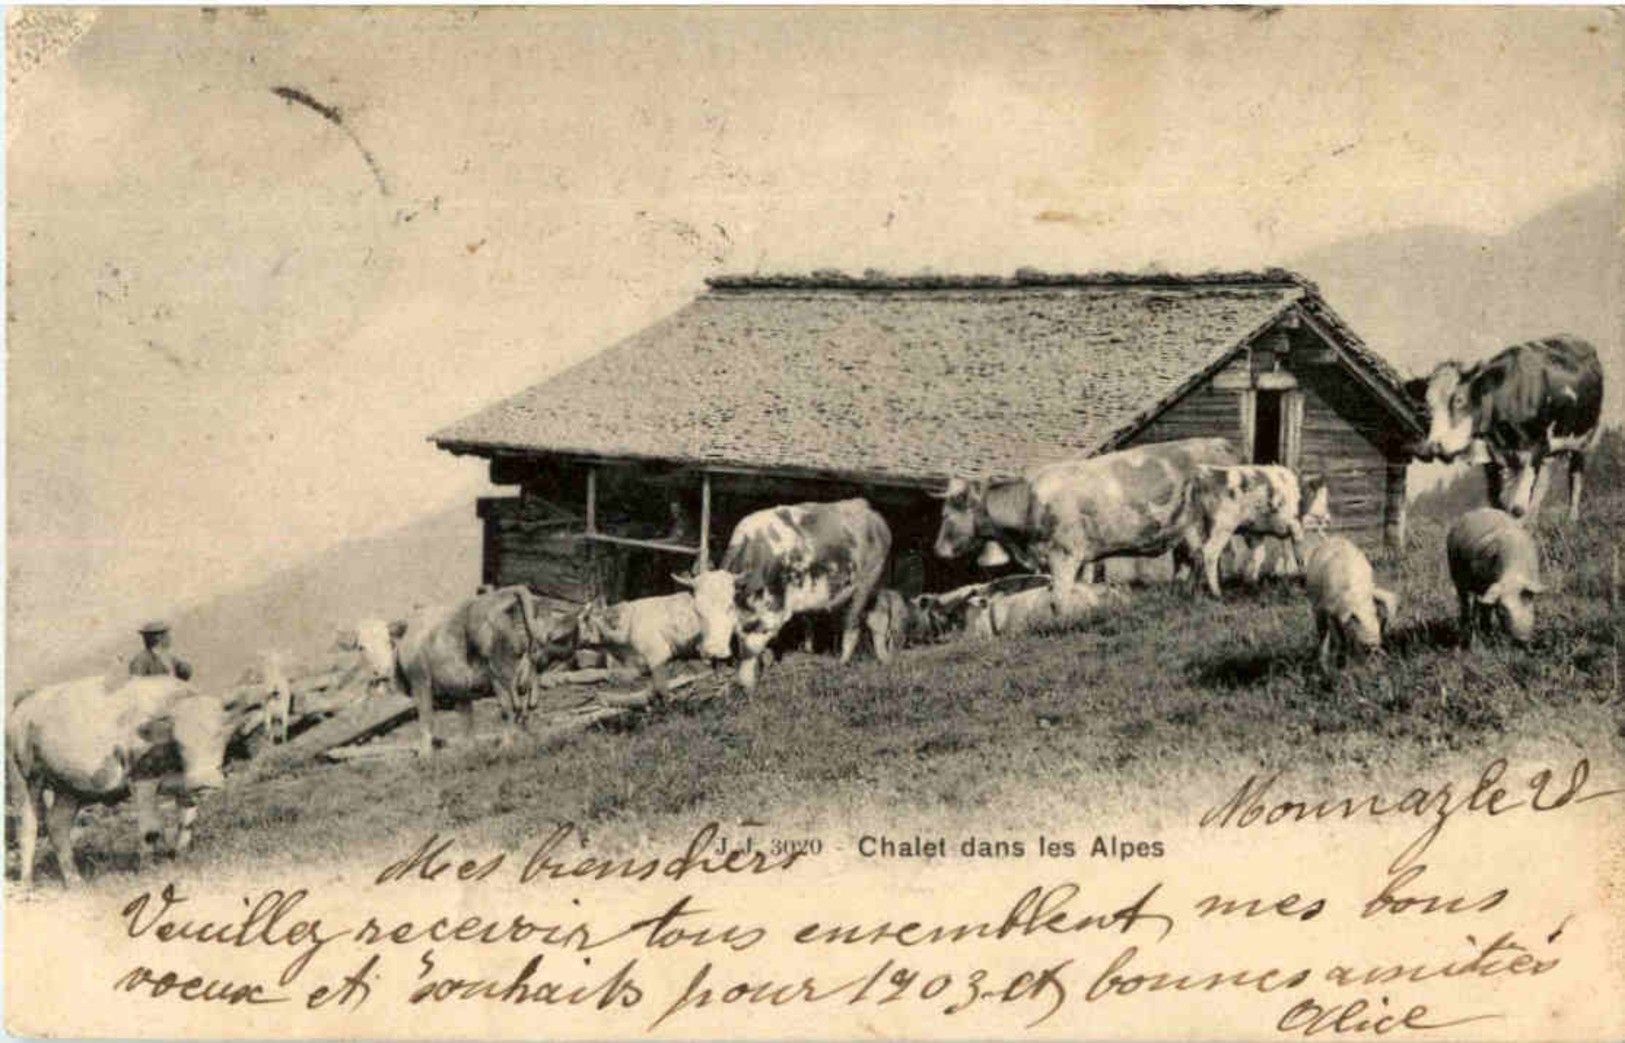 J.J. 3020 - Chalet dans les Alpes
Monnazle 28
Mes bienschèrs
Veuillez recevoir tous ensemblent mes bons
voeux et souhaits pour 1903 et bonnes amitiés
Alice